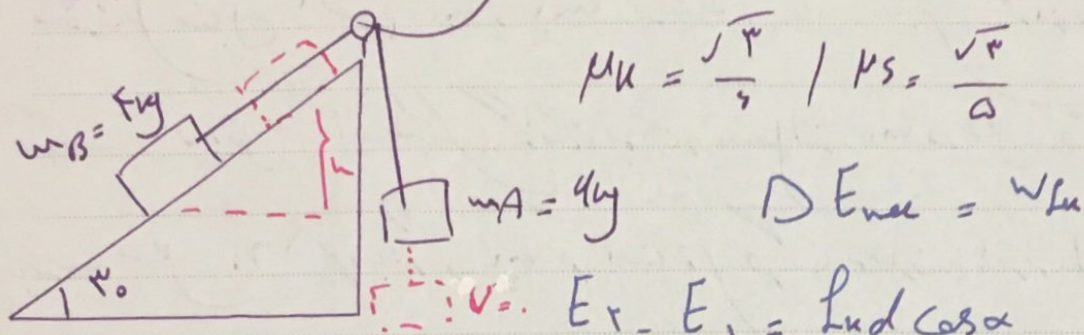 μk = √۳/۶ / μs = √۳/۵
mB = ۴kg
h
mA = ۶kg    Δ Emec = Wfk
۳۰    V=۰    E۲ - E۱ = fk d cos α